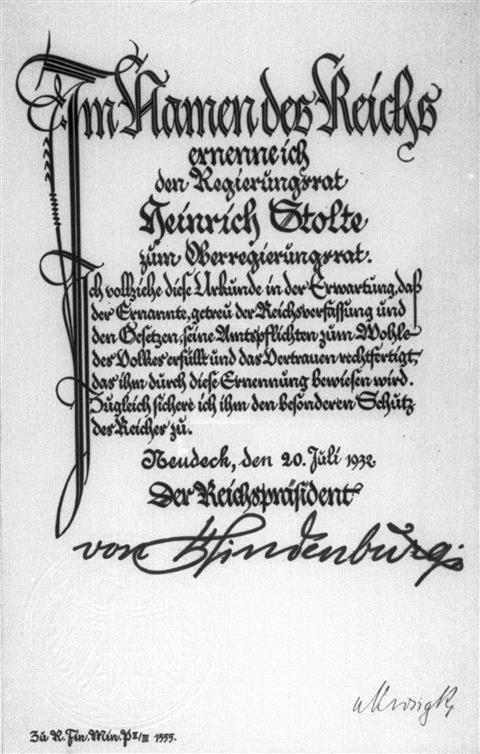 Im Namen des Reichs
ernenne ich
den Regierungsrat
Heinrich Stolte
zum Oberregierungsrat.
Ich vollziehe diese Urkunde in der Erwartung, daß
der Ernannte, getreu der Reichsverfassung und
den Gesetzen, seine Amtspflichten zum Wohle
des Volkes erfüllt und das Vertrauen rechtfertigt,
das ihm durch diese Ernennung bewiesen wird.
Zugleich sichere ich ihm den besonderen Schutz
des Reiches zu.
Neudeck, den 20. Juli 1932
Der Reichspräsident
von Hindenburg
Zu R. Fin. Min. P II/III 1555.